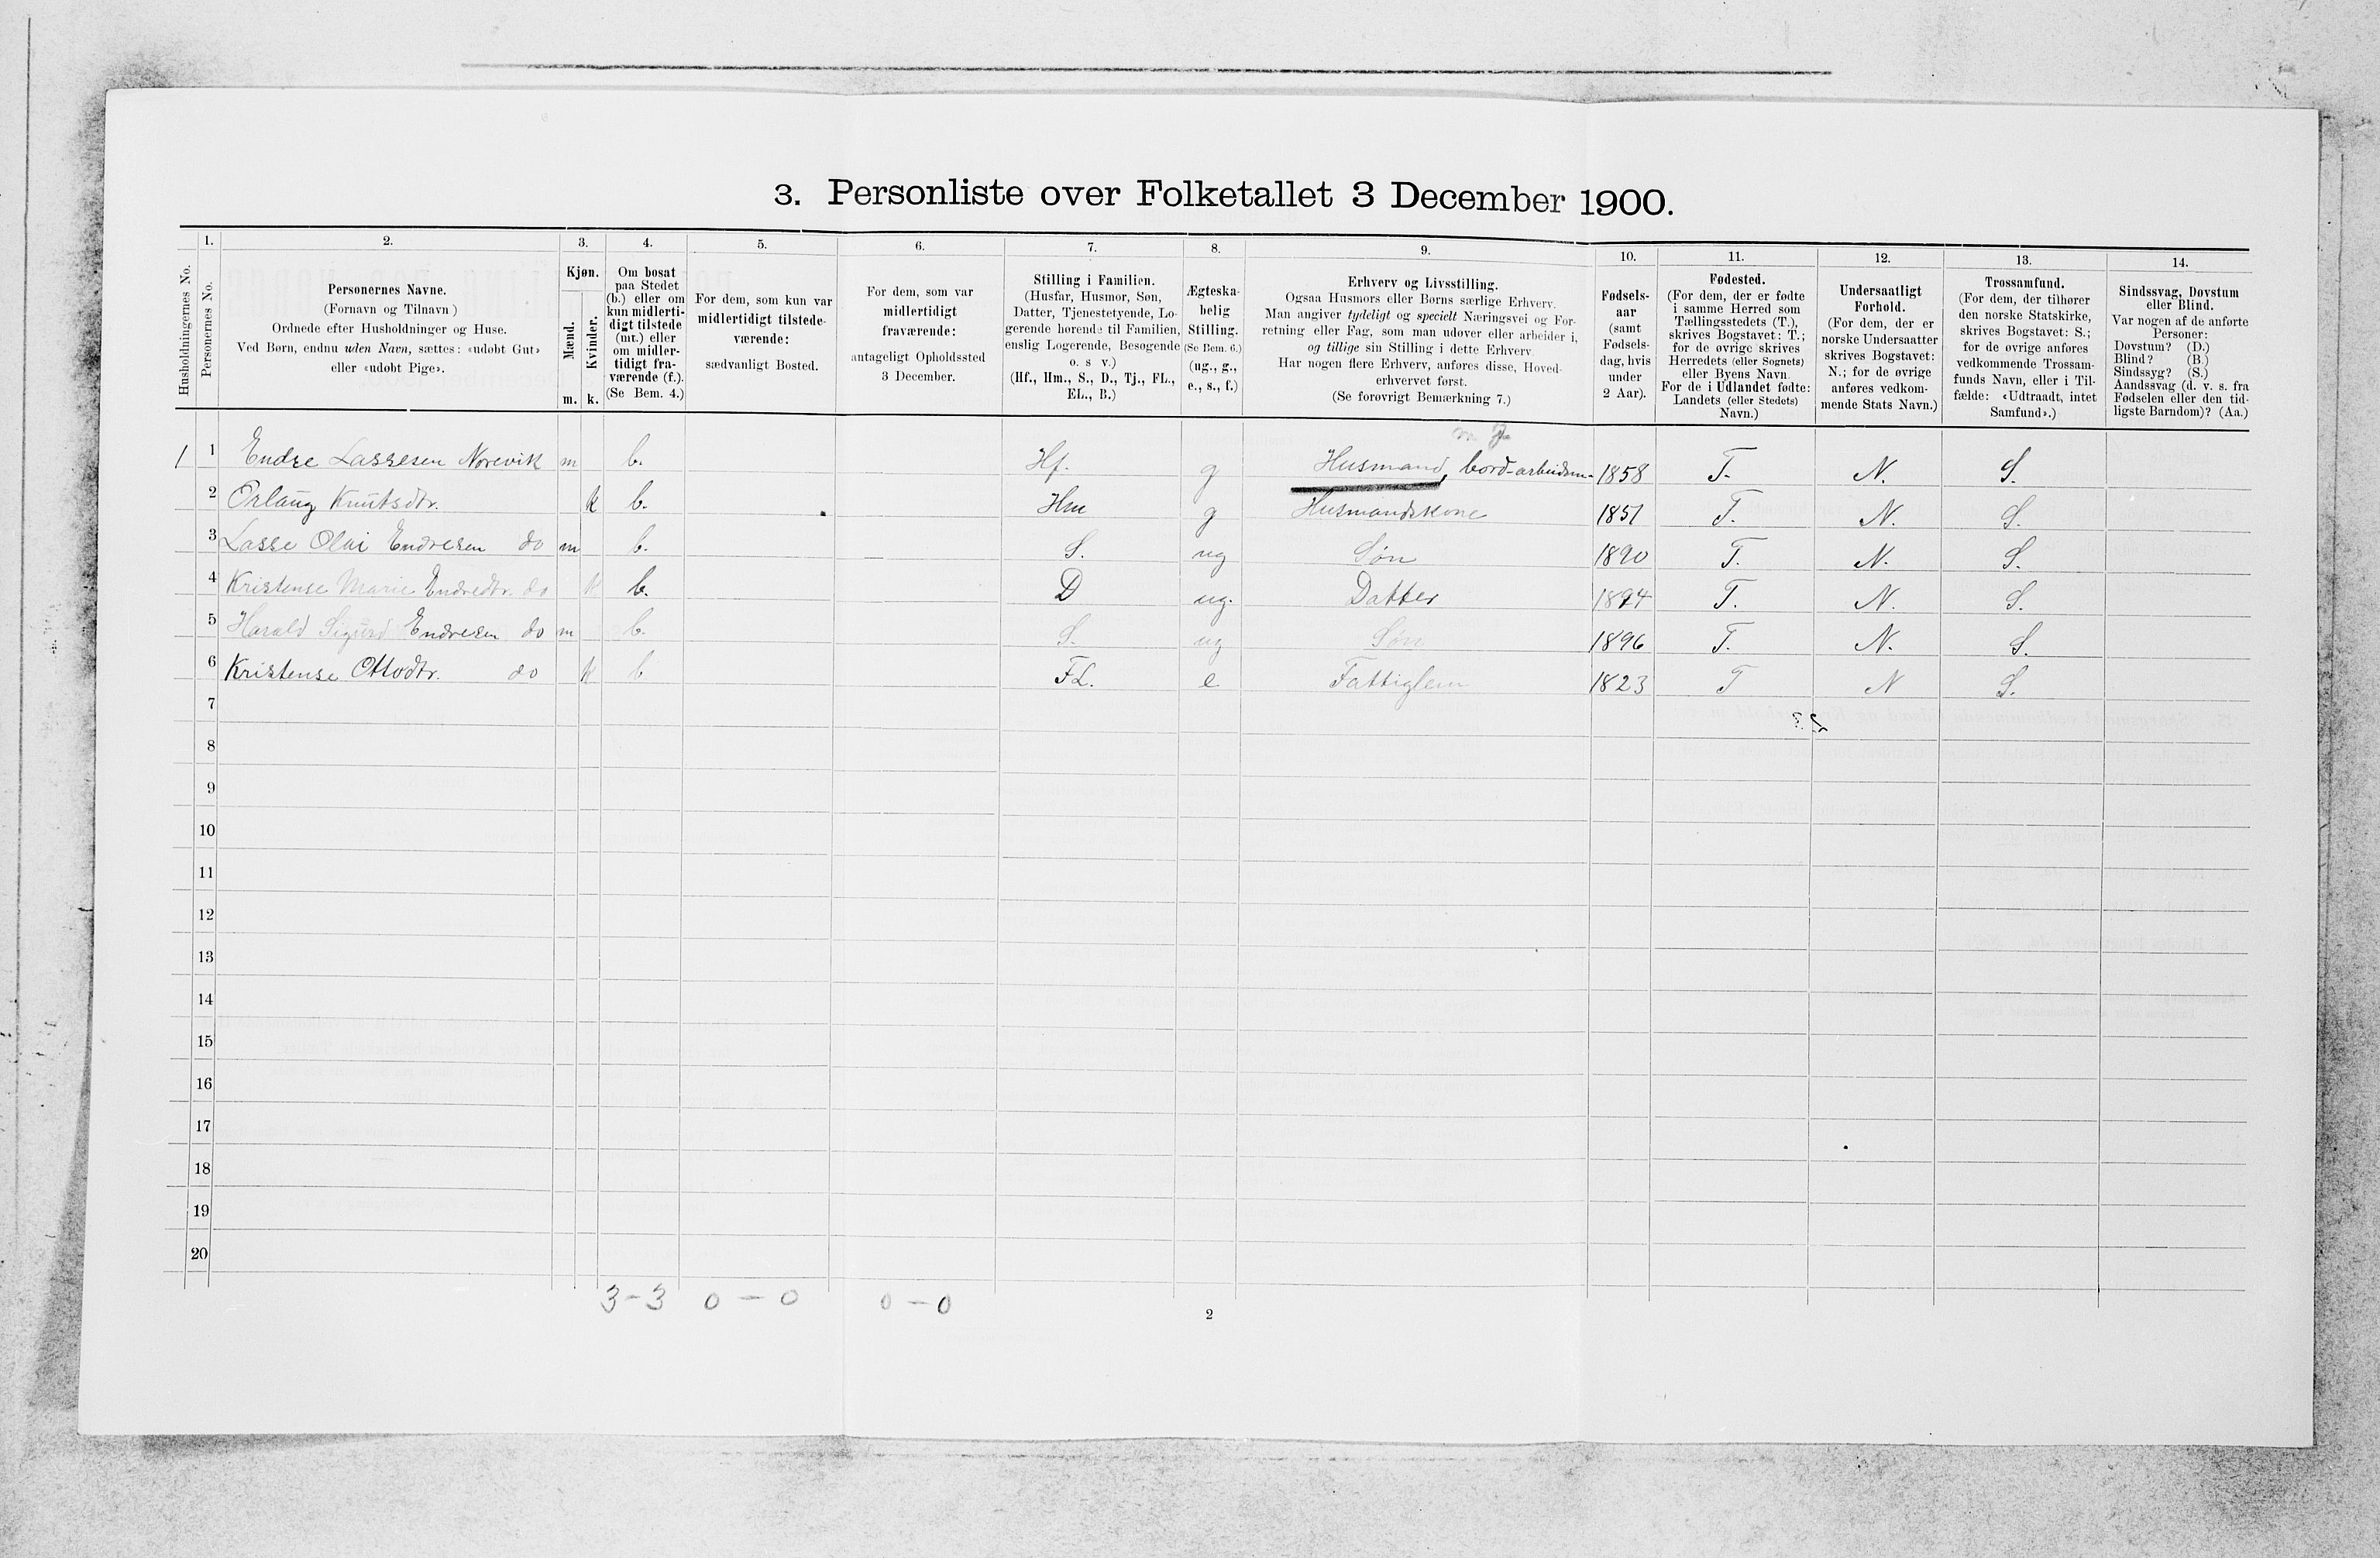 3. Personliste over Folketallet 3 December 1900.
1. 2. 3. 4. 5. 6. 7. 8. 9. 10. 11. 12. 13. 14.
Husholdningernes No.
Personernes No.
Personernes Navne.
(Fornavn og Tilnavn )
Ordnede efter Husholdninger og Huse.
Ved Børn, endnu uden Navn, sættes: «udøbt Gut»
eller «udøbt Pige».
Kjøn.
Mænd.
Kvinder.
m. k.
Om bosat
paa Stedet
(b.) eller om
kun midlerti-
digt tilstede
(mt.) eller
om midler-
tidigt fra-
værende (f.).
(Se Bem. 4.)
For dem, som kun var
midlertidigt tilstede-
værende:
sædvanligt Bosted.
For dem, som var
midlertidigt
fraværende:
antageligt Opholdssted
3 December.
Stilling i Familien.
(Husfar, Husmor, Søn,
Datter, Tjenestetyende, Lo-
gerende hørende til Familien,
enslig Logerende, Besøgende
o. s v.)
(Hf., Hm., S., D., Tj., FL.,
EL., B.)
Ægteska-
belig
Stilling.
(Se Bem. 6.)
(ug., g.,
e., s., f.)
Erhverv og Livsstilling.
Ogsaa Husmors eller Børns særlige Erhverv.
Man angiver tydeligt og specielt Næringsvei og For-
retning eller Fag, som man udøver eller arbeider i,
og tillige sin Stilling i dette Erhverv.
Har nogen flere Erhverv, anføres disse, Hoved-
erhvervet først.
(Se forøvrigt Bemærkning 7.)
Fødsels-
aar
(samt
Fødsels-
dag, hvis
under
2 Aar).
Fødested.
(For dem, der er fødte
i samme Herred som
Tællingsstedets (T.),
skrives Bogstavet: T.;
for de øvrige skrives
Herredets (eller Sognets)
eller Byens Navn.
For de i Udlandet fødte:
Landets (eller Stedets)
Navn.)
Undersaatligt
Forhold.
(For dem, der er
norske Undersaatter
skrives Bogstavet:
N.; for de øvrige
anføres vedkom-
mende Stats Navn.)
Trossamfund.
(For dem, der tilhører
den norske Statskirke,
skrives Bogstavet: S.;
for de øvrige anføres
vedkommende Trossam-
funds Navn, eller i Til-
fælde: «Udtraadt, intet
Samfund».)
Sindssvag, Døvstum
eller Blind.
Var nogen af de anførte
Personer:
Døvstum? (D.)
Blind? (B.)
Sindssyg? (S.)
Aandssvag (d. v. s. fra
Fødselen eller den tid-
ligste Barndom)? (Aa.)
1 1 Endre Lassesen Norevik m b. Hf. g Husmand, bord-arbeidsm. 1858 T. N. S.
2 Orlaug Knutsdtr. k b. Hm g Husmandskone 1851 T. N. S.
3 Lasse Olai Endresen do m b. S. ug Søn 1890 T. N. S.
4 Kristense Marie Endredtr. do k b. D ug. Datter 1894 T. N. S.
5 Harald Sigurd Endresen do m b. S. ug Søn 1896 T. N. S.
6 Kristense Ottodtr. do k b FL. e Fattiglem 1823 T N S.
7
8
9
10
11
12
13
14
15
16
17
18
19
20
3-3 0-0 0-0
2